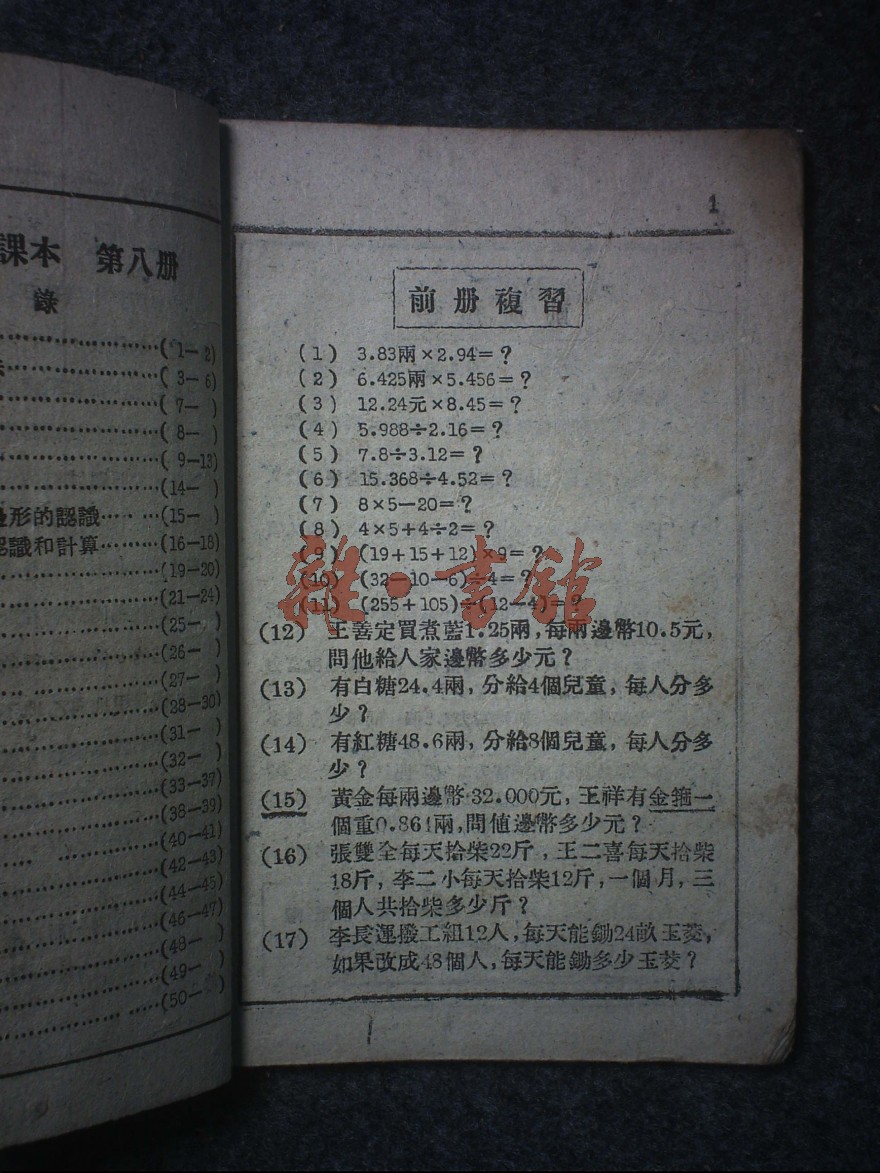 課本 第八册
錄
(1—2)
(3—6)
(7— )
(8— )
(9—13)
(14— )
形的認識 (15— )
認識和計算 (16—18)
(19—20)
(21—24)
(25— )
(26— )
(27— )
(28—30)
(31— )
(32— )
(33—37)
(38—39)
(40—41)
(42—43)
(44—45)
(46—47)
(48— )
(49— )
(50—
1
前册複習
(1) 3.83兩×2.94=?
(2) 6.425兩×5.456=?
(3) 12.24元×8.45=?
(4) 5.988÷2.16=?
(5) 7.8÷3.12=?
(6) 15.368÷4.52=?
(7) 8×5—20=?
(8) 4×5+4÷2=?
(9) (19+15+12)×9=?
(10) (32—10—6)÷4=?
(11) (255+105)÷(12—4)=?
(12) 王善定買煮藍1.25兩,每兩邊幣10.5元,
問他給人家邊幣多少元?
(13) 有白糖24.4兩,分給4個兒童,每人分多
少?
(14) 有紅糖48.6兩,分給8個兒童,每人分多
少?
(15) 黃金每兩邊幣32.000元,王祥有金箍一
個重0.864兩,問値邊幣多少元?
(16) 張雙全每天拾柴22斤,王二喜每天拾柴
18斤,李二小每天拾柴12斤,一個月,三
個人共拾柴多少斤?
(17) 李長運撥工組12人,每天能鋤24畝玉茭,
如果改成48個人,每天能鋤多少玉茭?
雜·書館